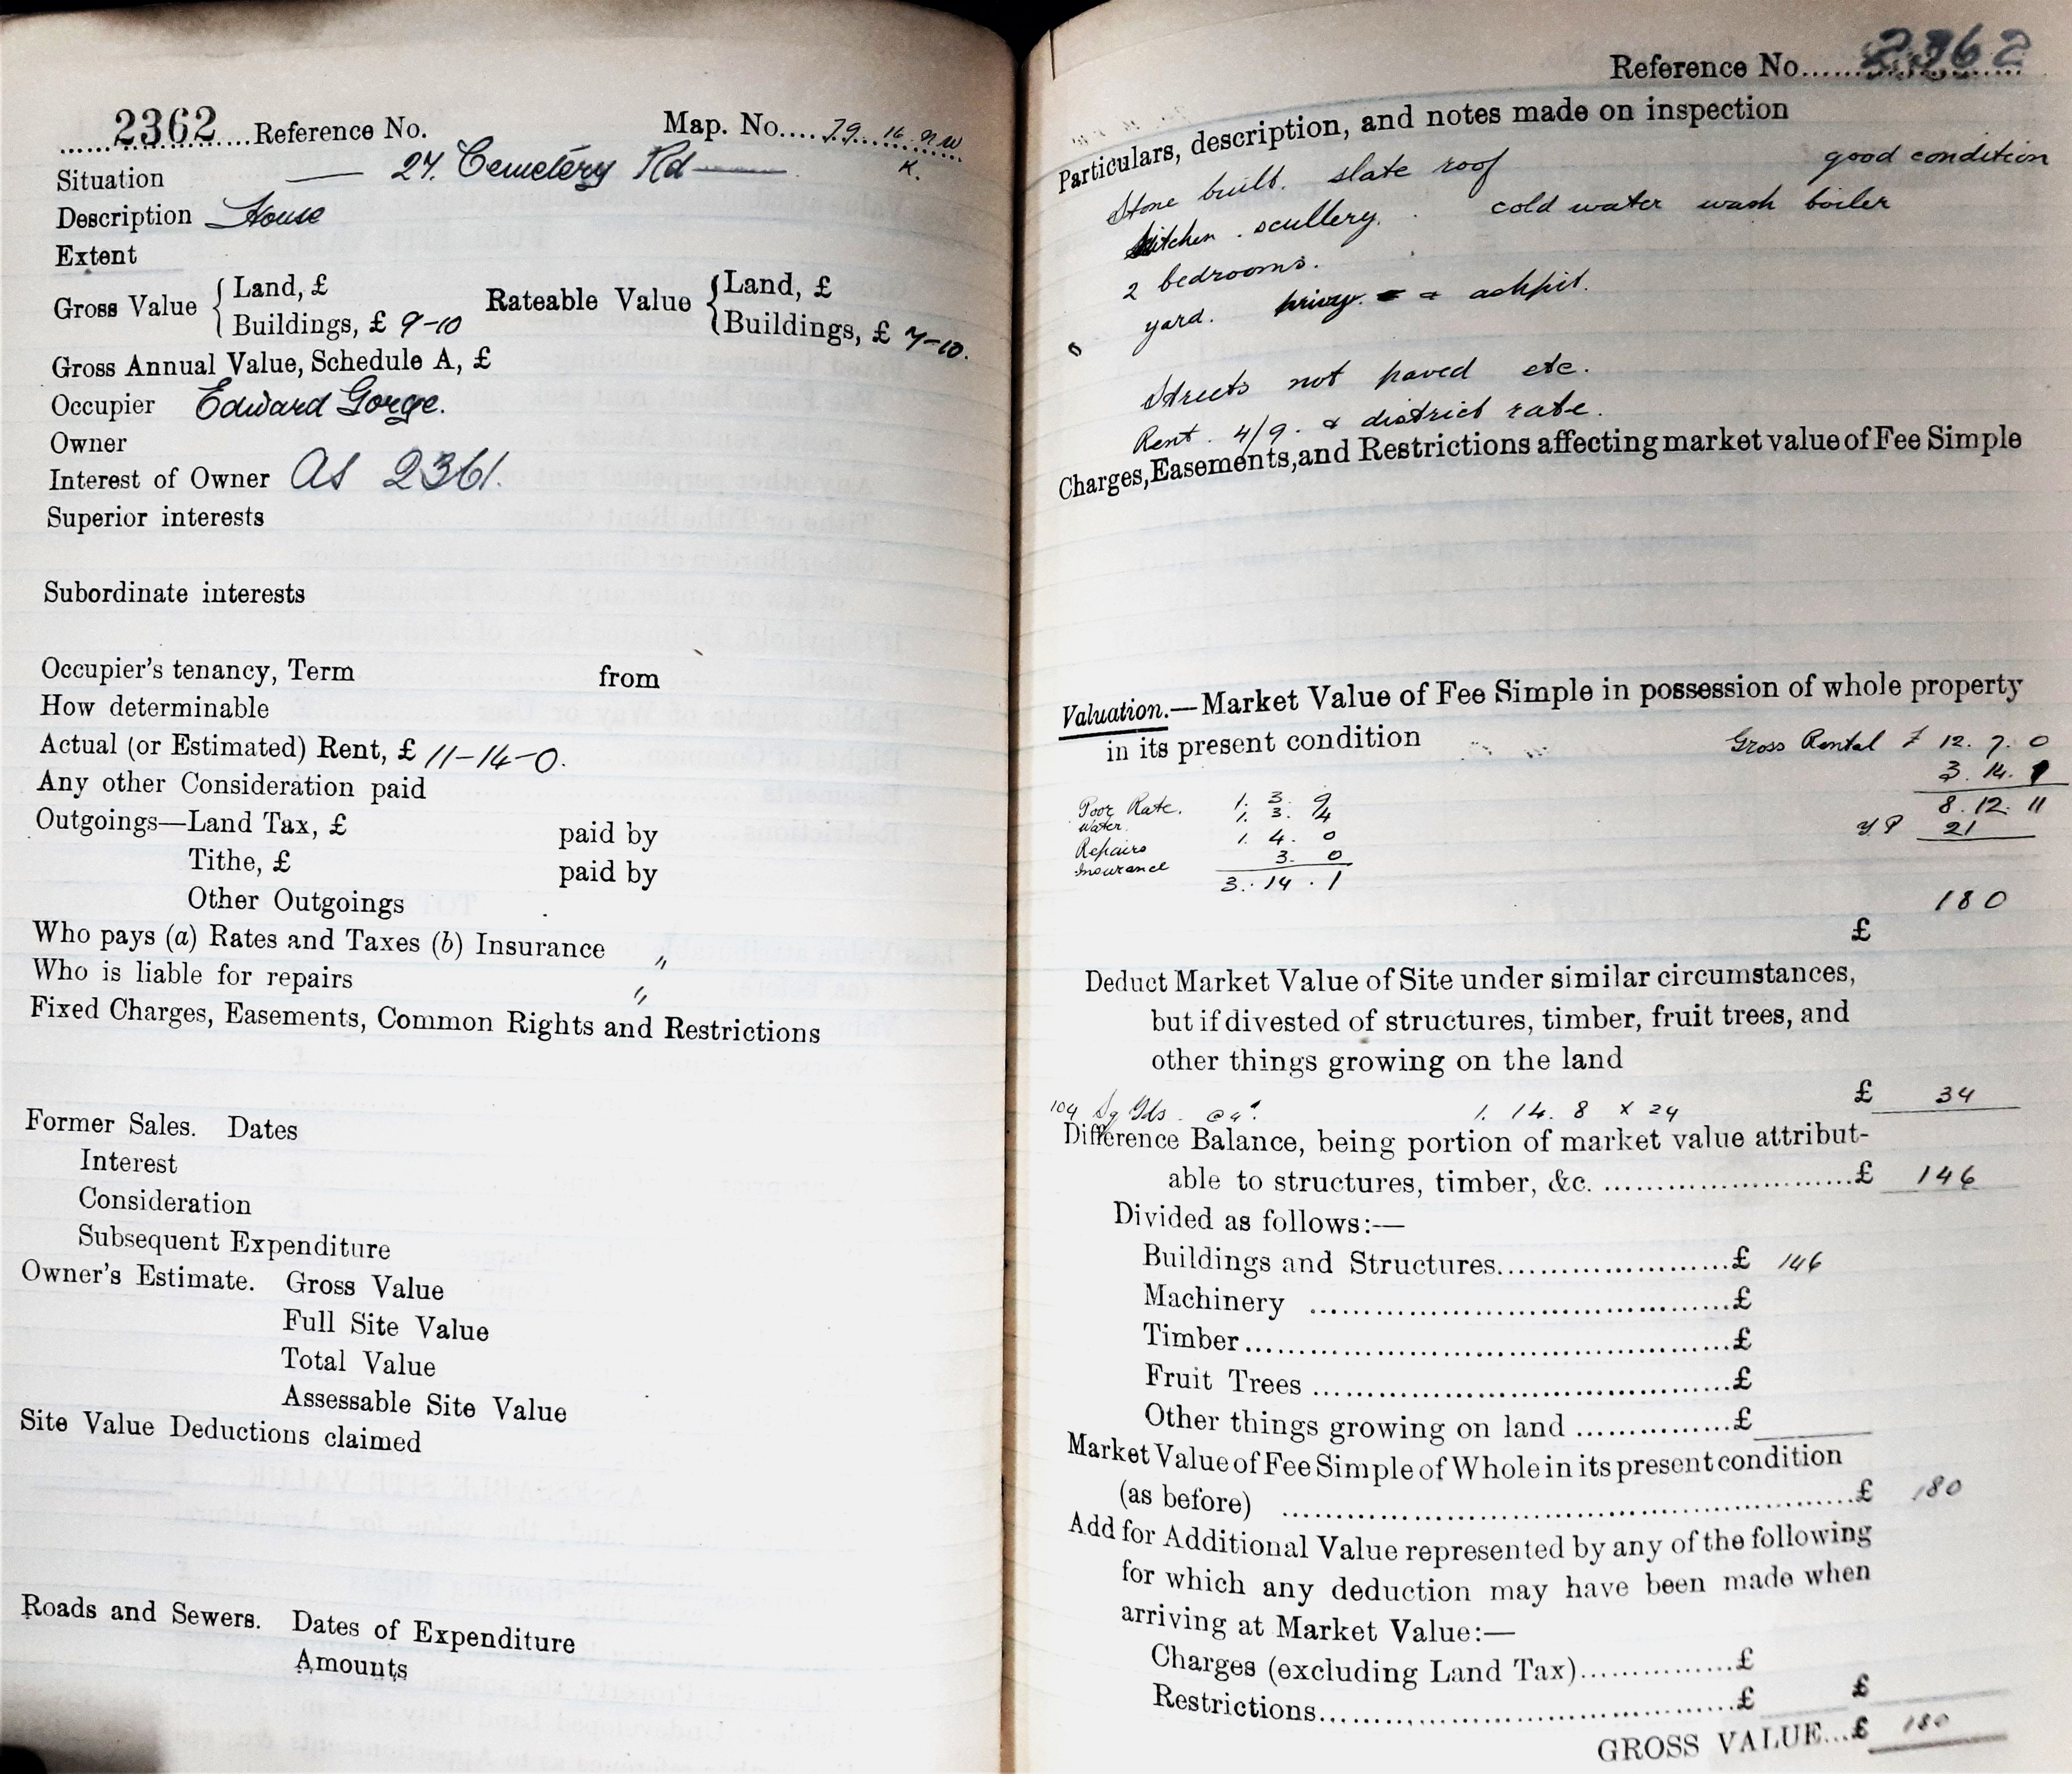 2362 Reference No. Map. No. 79 16 NW
K.
Situation 27. Cemetery Rd
Description House
Extent
Gross Value { Land, £ Rateable Value { Land, £
Buildings, £ 9-10 Buildings, £ 7-10.
Gross Annual Value, Schedule A, £
Occupier Edward Gorge.
Owner
Interest of Owner As 2361.
Superior interests
Subordinate interests
Occupier's tenancy, Term from
How determinable
Actual (or Estimated) Rent, £ 11-14-0.
Any other Consideration paid
Outgoings—Land Tax, £ paid by
Tithe, £ paid by
Other Outgoings
Who pays (a) Rates and Taxes (b) Insurance "
Who is liable for repairs "
Fixed Charges, Easements, Common Rights and Restrictions
Former Sales. Dates
Interest
Consideration
Subsequent Expenditure
Owner's Estimate. Gross Value
Full Site Value
Total Value
Assessable Site Value
Site Value Deductions claimed
Roads and Sewers. Dates of Expenditure
Amounts
Reference No. 2362
Particulars, description, and notes made on inspection
Stone built. slate roof good condition
kitchen. scullery. cold water wash boiler
2 bedrooms.
yard. privy & ashpit.
Streets not paved etc.
Rent. 4/9. & district rate.
Charges, Easements, and Restrictions affecting market value of Fee Simple
Valuation.—Market Value of Fee Simple in possession of whole property
in its present condition Gross Rental £ 12. 7. 0
3. 14. 1
Poor Rate. 1. 3. 9 8. 12. 11
Water. 1. 3. 4 YP 21
Repairs 1. 4. 0
Insurance 3. 0
3. 14. 1
180
£
Deduct Market Value of Site under similar circumstances,
but if divested of structures, timber, fruit trees, and
other things growing on the land
104 Sq Yds. @ 4d. 1. 14. 8 x 24 £ 34
Difference Balance, being portion of market value attribut-
able to structures, timber, &c. £ 146
Divided as follows:—
Buildings and Structures £ 146
Machinery £
Timber £
Fruit Trees £
Other things growing on land £
Market Value of Fee Simple of Whole in its present condition
(as before) £ 180
Add for Additional Value represented by any of the following
for which any deduction may have been made when
arriving at Market Value:—
Charges (excluding Land Tax) £
Restrictions £ £
GROSS VALUE...£ 180